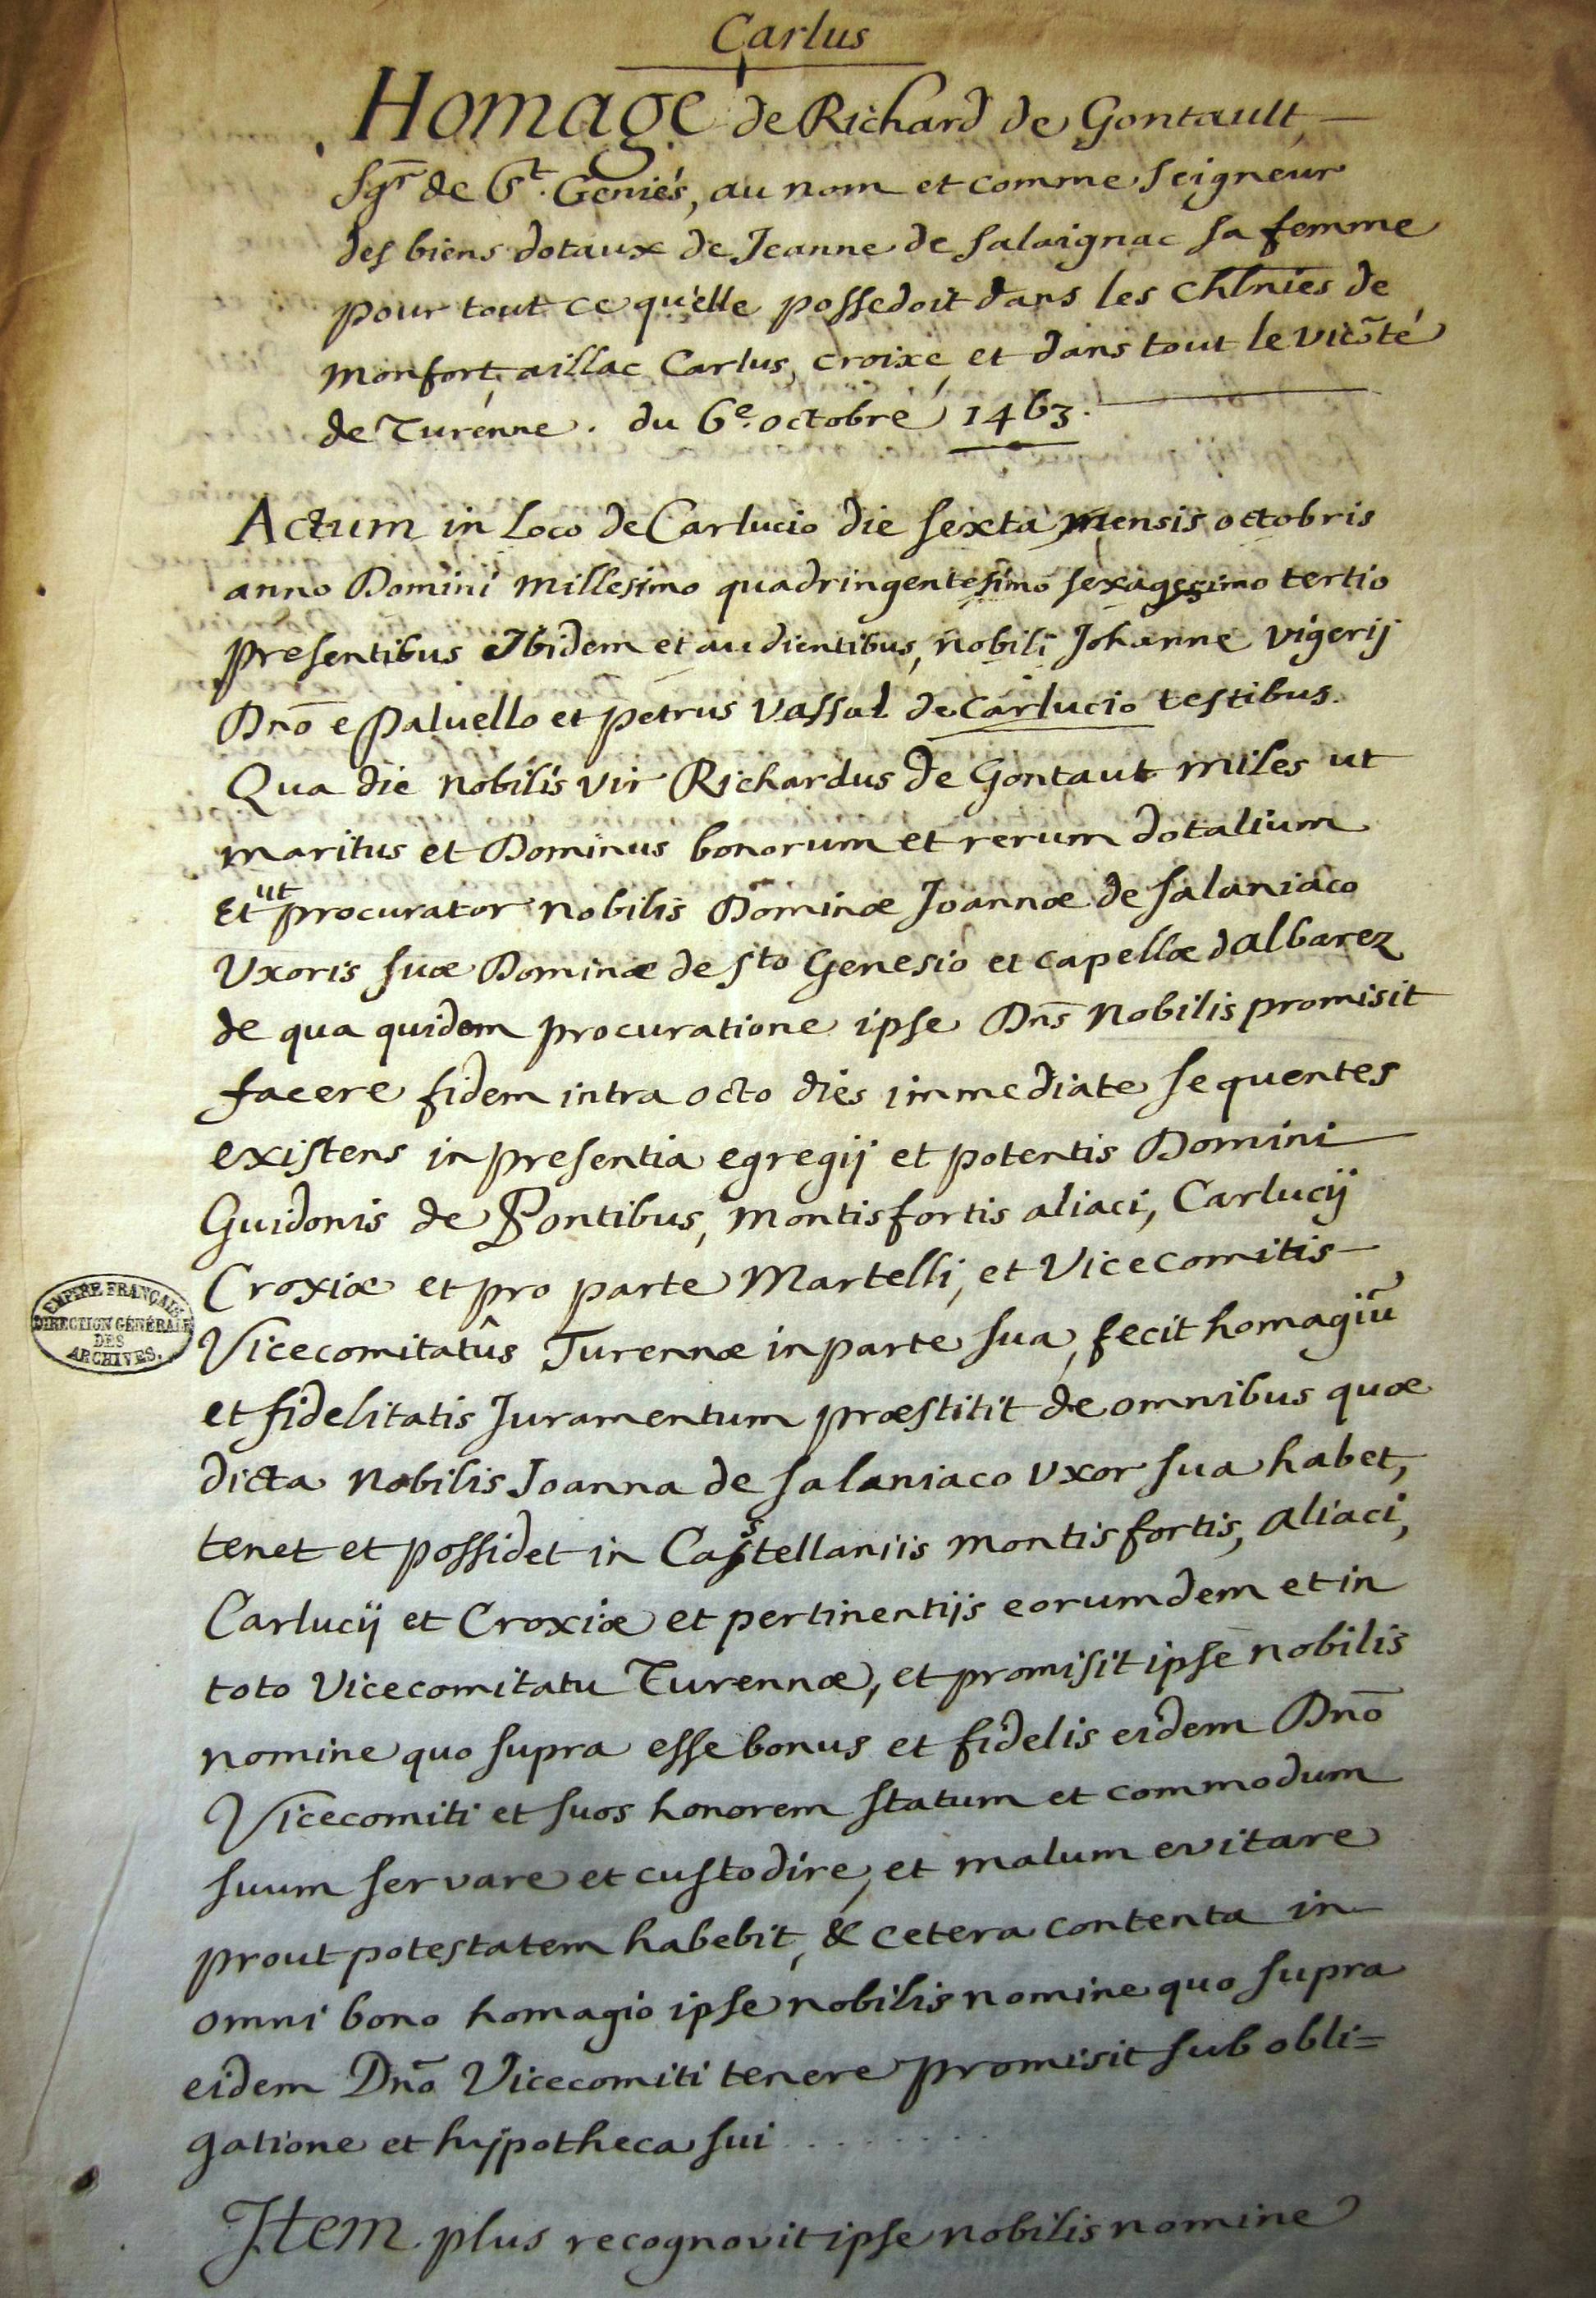 Carlus
Homage de Richard de Gontault
Sgr de St. Geniés, au nom et comme seigneur
des biens dotaux de Jeanne de salaignac sa femme
pour tout ce qu'elle possedoit dans les chlnies de
monfort, aillac Carlus, croixe, et dans tout le vicõté
de Turenne. du 6e. octobre 1463.
Actum in Loco de Carlucio die sexta mensis octobris
anno Domini millesimo quadringentesimo sexagesimo tertio
presentibus Ibidem et audientibus, nobili Johanne vigerij
Dnõ e Paluello et petrus vassal de Carlucio testibus.
Qua die nobilis vir Richardus de Gontaut miles ut
maritus et Dominus bonorum et rerum dotalium
Et ut procurator nobilis Dominæ Joannæ de salaniaco
Uxoris suæ Dominæ de Sto Genesio et capellæ dalbarez
de qua quidem procuratione ipse Dns̃ nobilis promisit
facere fidem intra octo dies immediate sequentes
existens in presentia egregij et potentis Domini
Guidonis de Pontibus, montisfortis aliaci, Carlucij
Croxiæ et pro parte Martelli, et Vicecomitis
Vicecomitatûs Turennæ in parte sua, fecit homagiũ
et fidelitatis Juramentum præstitit de omnibus quæ
dicta nobilis Joanna de salaniaco uxor sua habet,
tenet et possidet in Castellaniis montisfortis, aliaci,
Carlucij et Croxiæ et pertinentijs eorumdem et in
toto Vicecomitatu Turennæ, et promisit ipse nobilis
nomine quo supra esse bonus et fidelis eidem Dnõ
Vicecomiti et suos honorem statum et commodum
suum servare et custodire, et malum evitare
prout potestatem habebit, & cetera contenta in
omni bono homagio ipse nobilis nomine quo supra
eidem Dnõ Vicecomiti tenere promisit sub obli=
gatione et hypotheca sui . . . . . . . . .
Item plus recognovit ipse nobilis nomine
EMPIRE FRANÇAIS
DIRECTION GÉNÉRALE
DES
ARCHIVES.